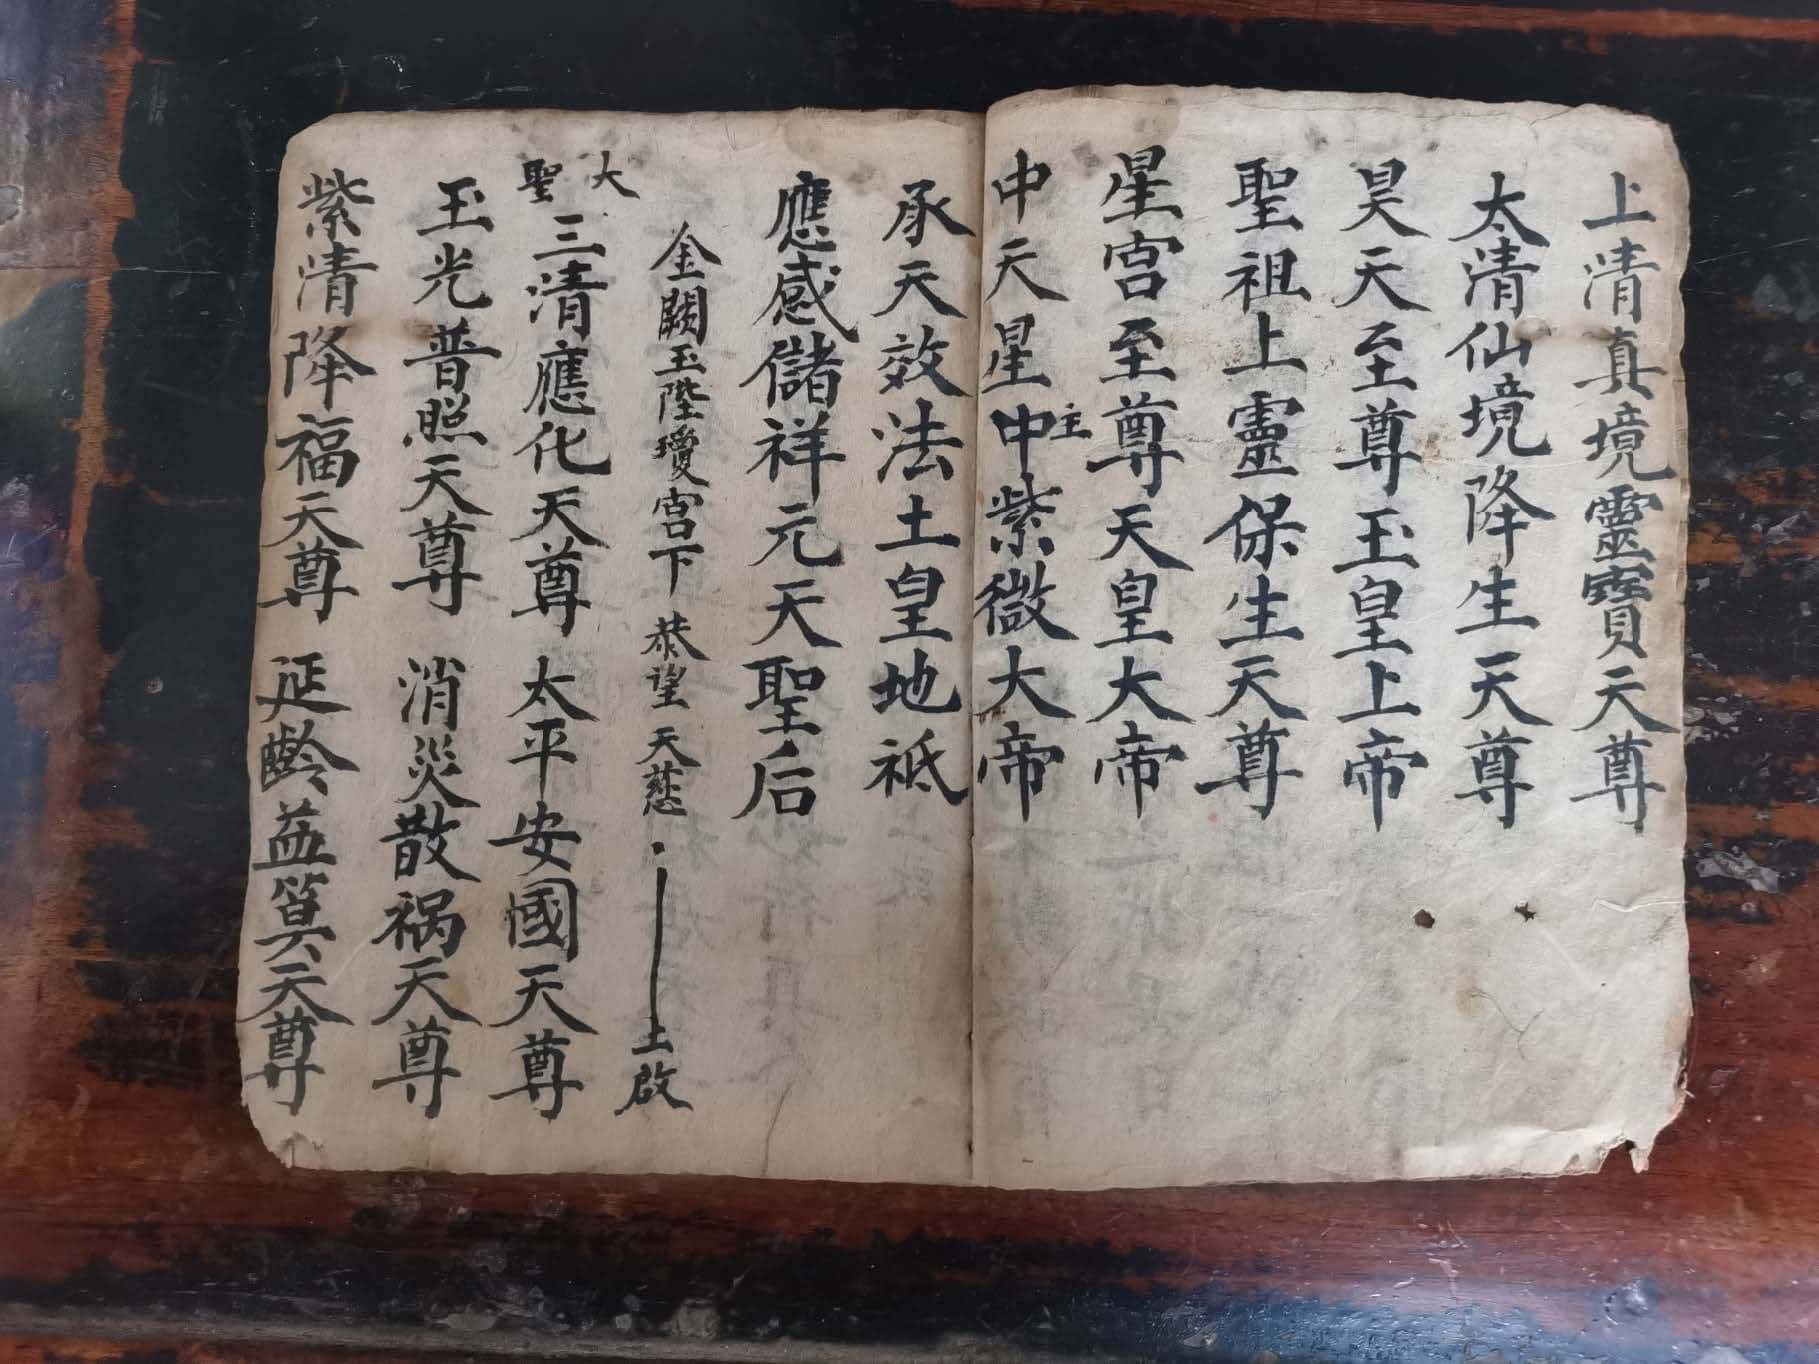 上清真境靈寶天尊
太清仙境降生天尊
昊天至尊玉皇上帝
聖祖上靈保生天尊
星宮至尊天皇大帝
中天星主中紫微大帝
承天效法土皇地祇
應感儲祥元天聖后
金闕玉陛瓊宮下 恭望 天慈 上啟
大聖三清應化天尊 太平安國天尊
玉光普照天尊 消災散禍天尊
紫清降福天尊 延齡益算天尊